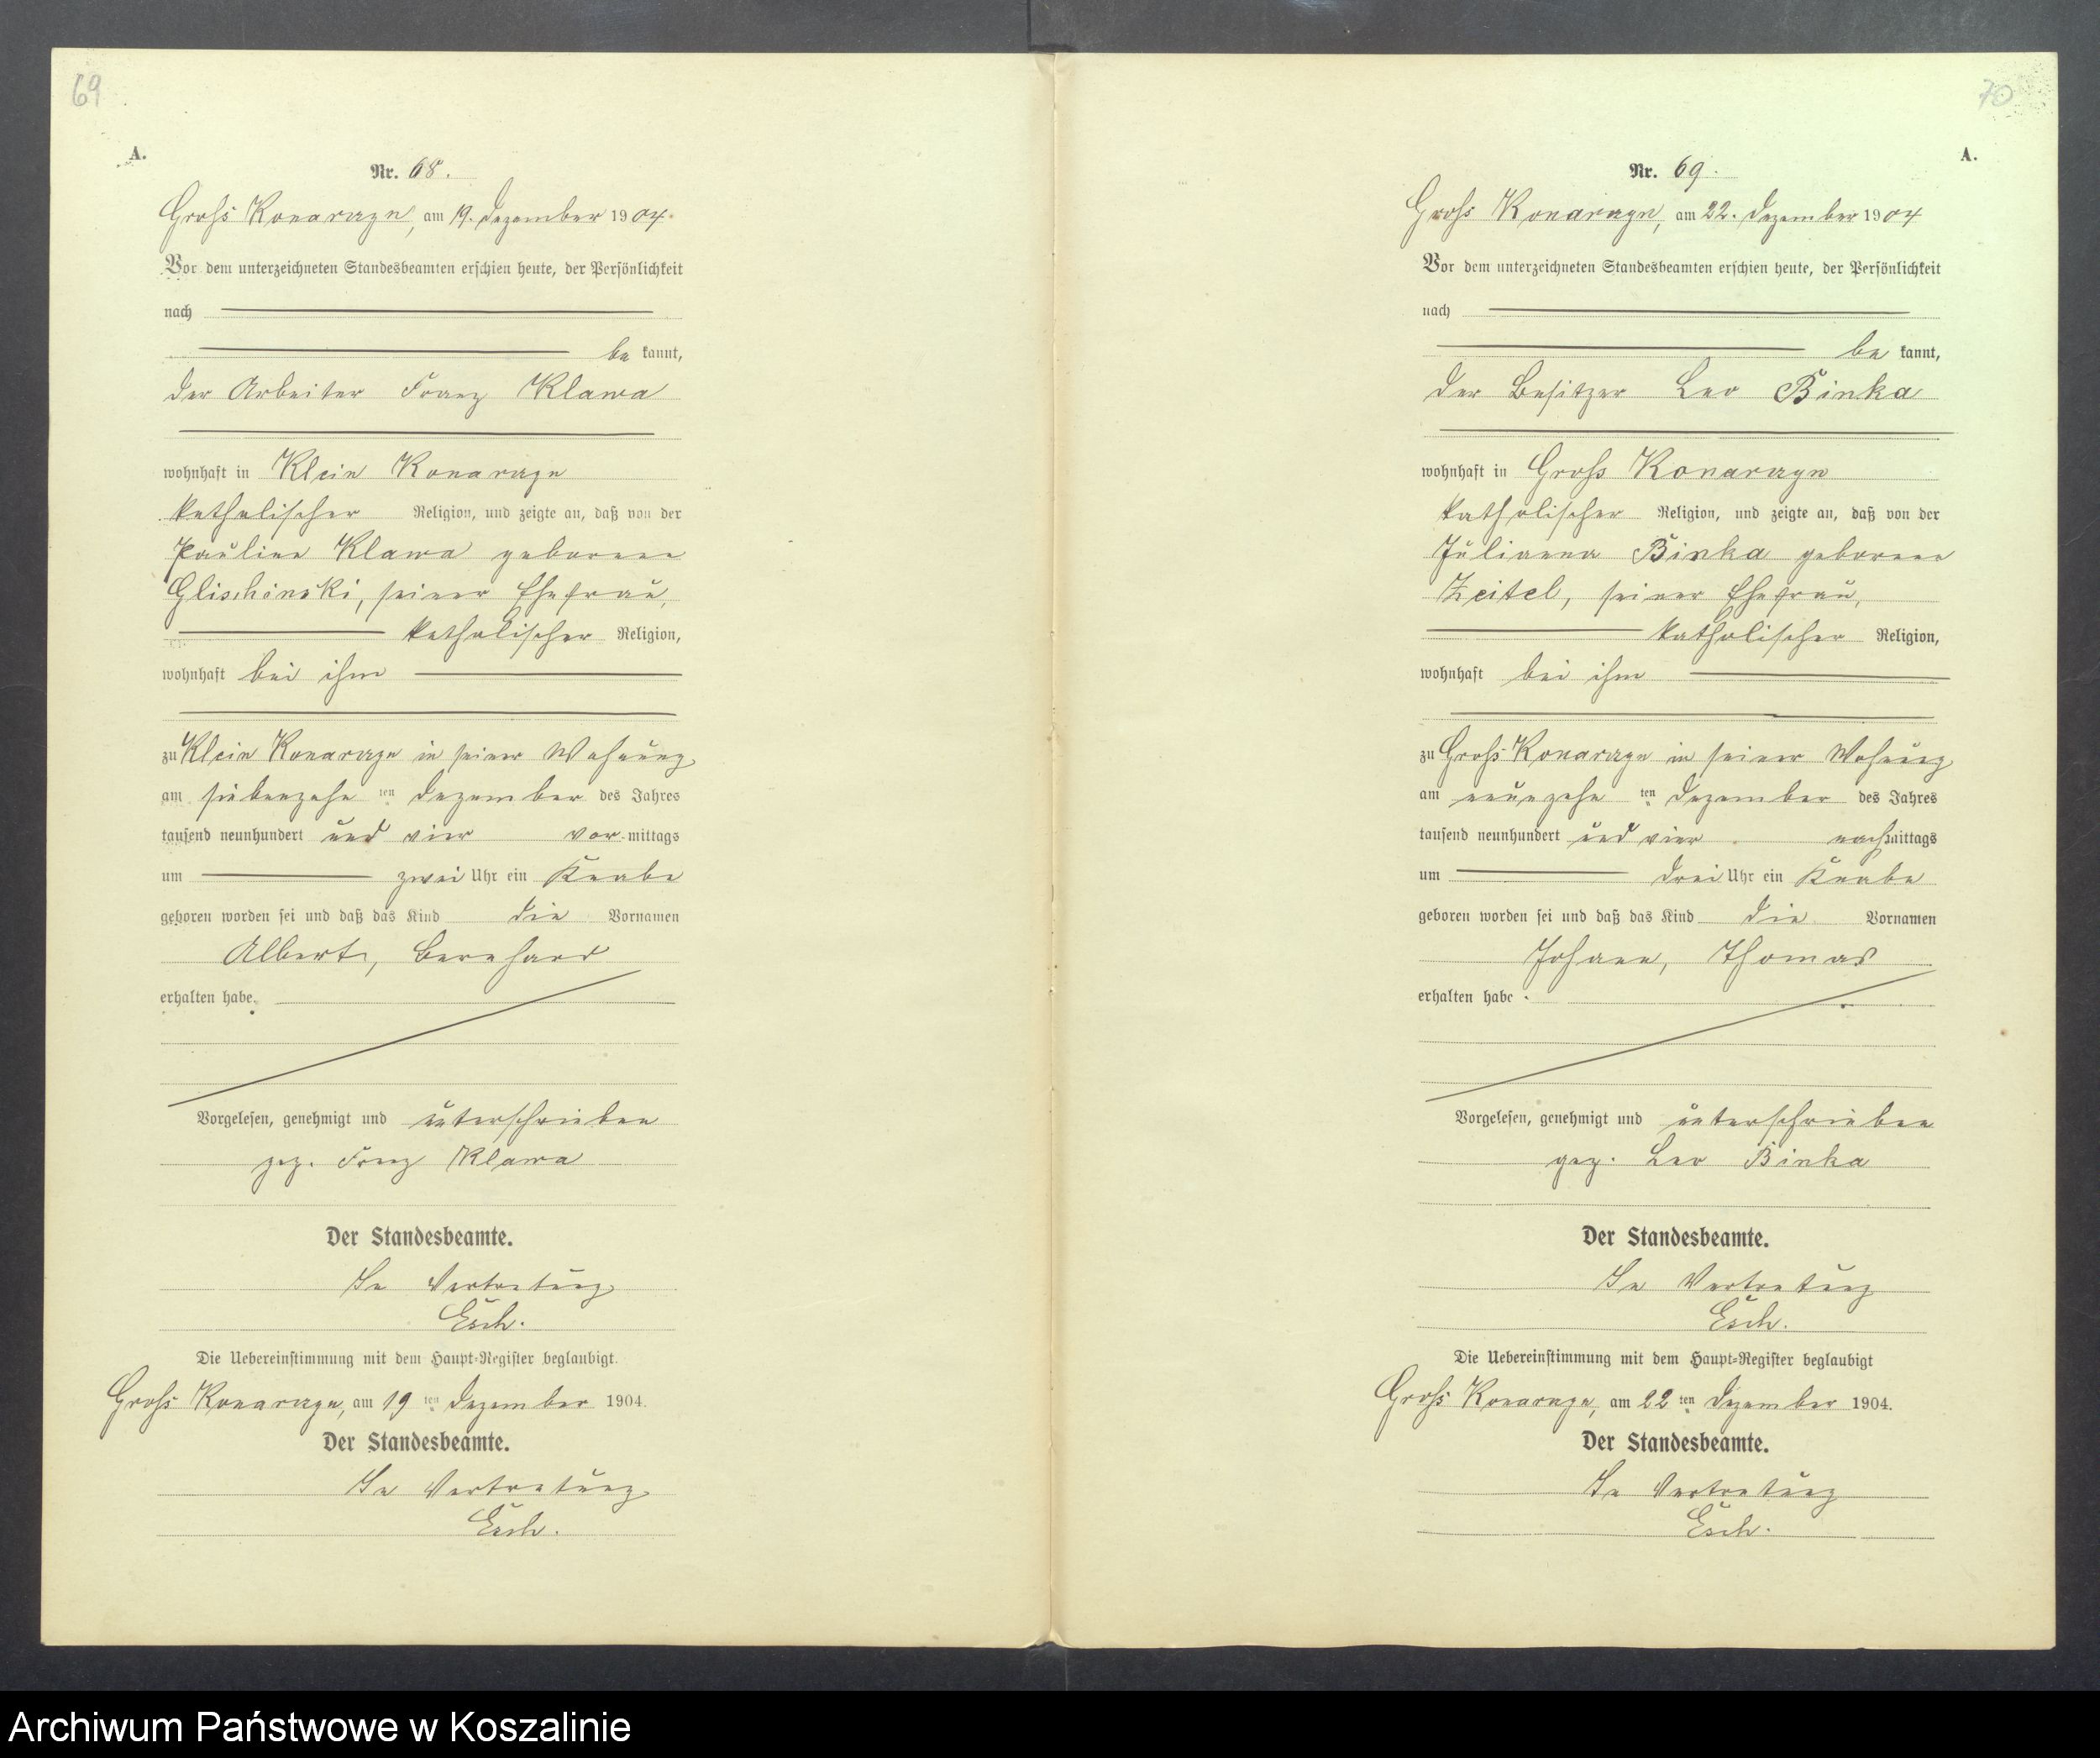 69
A.
Nr. 68.
Groß Konarczyn, am 19. Dezember 1904.
Vor dem unterzeichneten Standesbeamten erschien heute, der Persönlichkeit
nach
be kannt,
der Arbeiter Franz Klawa
wohnhaft in Klein Konarczyn
katholischer Religion, und zeigte an, daß von der
Pauline Klawa geborenen
Glischinski, seiner Ehefrau,
katholischer Religion,
wohnhaft bei ihm
zu Klein Konarczyn in seiner Wohnung
am siebenzehn ten Dezember des Jahres
tausend neunhundert und vier vor mittags
um zwei Uhr ein Knabe
geboren worden sei und daß das Kind die Vornamen
Albert, Bernhard
erhalten habe.
Vorgelesen, genehmigt und unterschrieben
gez. Franz Klawa
Der Standesbeamte.
In Vertretung
Esch.
Die Uebereinstimmung mit dem Haupt-Register beglaubigt
Groß Konarczyn, am 19 ten Dezember 1904.
Der Standesbeamte.
In Vertretung
Esch.
70
A.
Nr. 69.
Groß Konarczyn, am 22. Dezember 1904
Vor dem unterzeichneten Standesbeamten erschien heute, der Persönlichkeit
nach
be kannt,
der Besitzer Leo Binka
wohnhaft in Groß Konarczyn
katholischer Religion, und zeigte an, daß von der
Julianna Binka geborenen
Zeitel, seiner Ehefrau,
katholischer Religion,
wohnhaft bei ihm
zu Groß Konarczyn in seiner Wohnung
am neunzehn ten Dezember des Jahres
tausend neunhundert und vier nachmittags
um drei Uhr ein Knabe
geboren worden sei und daß das Kind die Vornamen
Johann, Thomas
erhalten habe.
Vorgelesen, genehmigt und unterschrieben
gez. Leo Binka
Der Standesbeamte.
In Vertretung
Esch.
Die Uebereinstimmung mit dem Haupt-Register beglaubigt
Groß Konarczyn, am 22 ten Dezember 1904.
Der Standesbeamte.
In Vertretung
Esch.
Archiwum Państwowe w Koszalinie